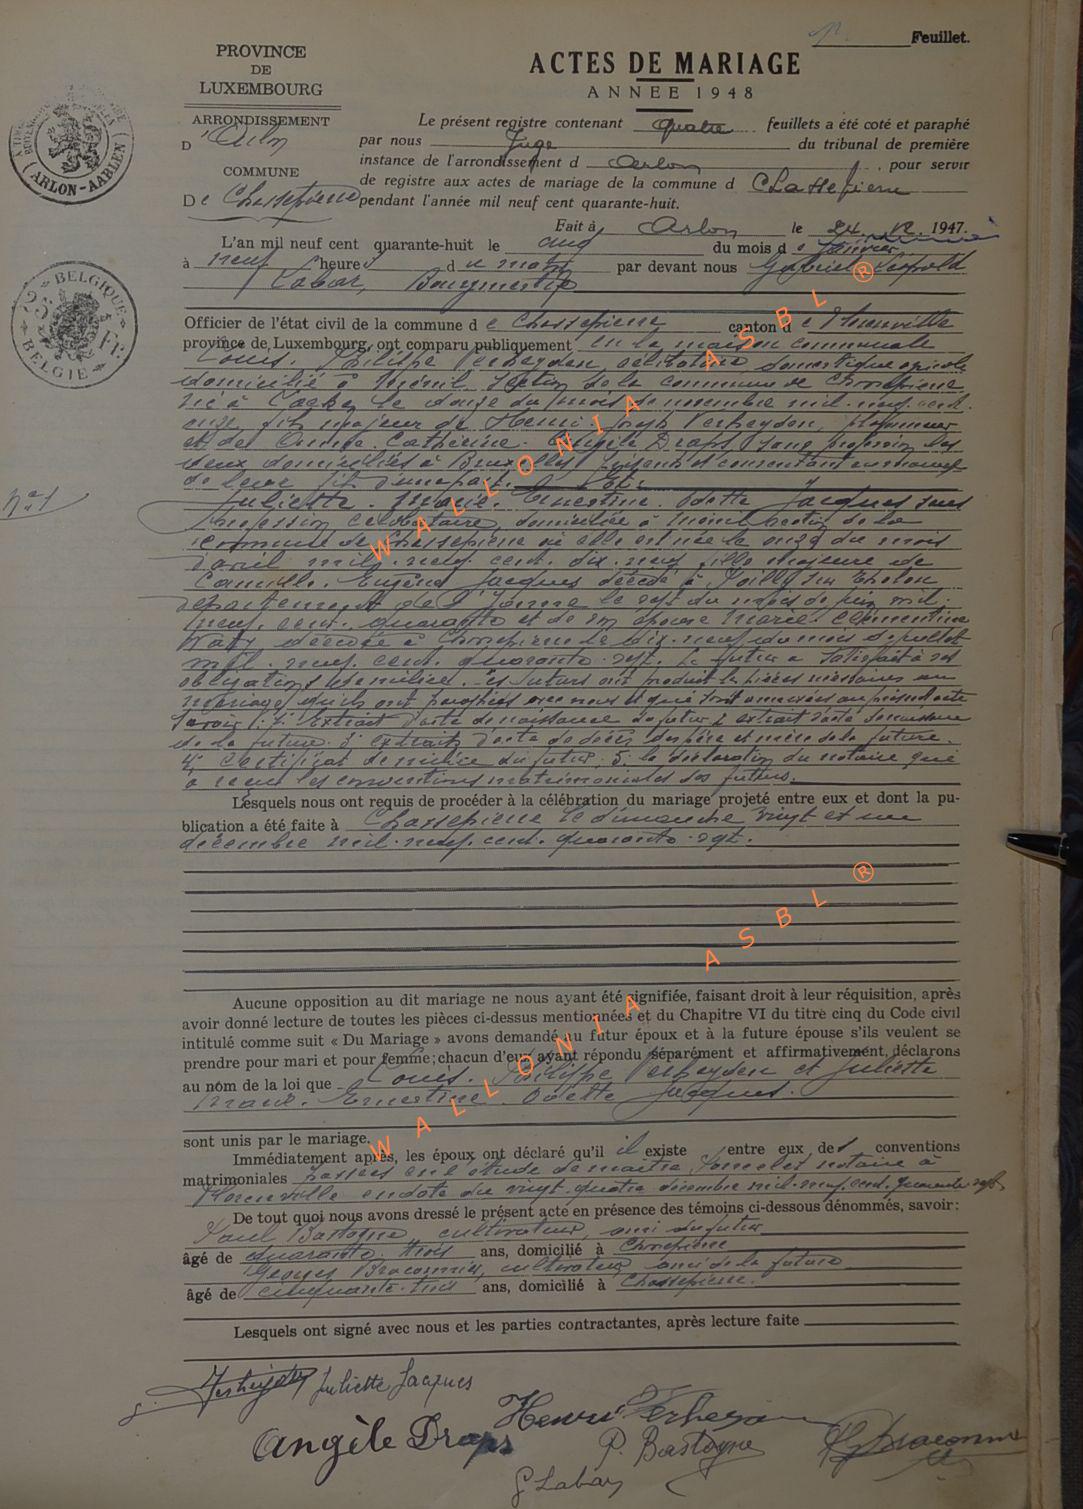 Feuillet.
PROVINCE
DE
LUXEMBOURG
ARRONDISSEMENT
D'Arlon
COMMUNE
De Chassepierre
ACTES DE MARIAGE
ANNEE 1948
Le présent registre contenant quatre feuillets a été coté et paraphé
par nous Juge du tribunal de première
instance de l'arrondissement d Arlon, pour servir
de registre aux actes de mariage de la commune d Chassepierre
pendant l'année mil neuf cent quarante-huit.
Fait à Arlon le 24. 12. 1947.
ARLON-AARLEN
BELGIQUE
2 Fr.
BELGIE
L'an mil neuf cent quarante-huit le cinq du mois de janvier
à neuf heures du matin par devant nous Gabriel Léopold
Labar, Bourgmestre
Officier de l'état civil de la commune de Chassepierre canton de Florenville
province de Luxembourg, ont comparu publiquement en la maison communale
Louis. Philippe Verheyden, célibataire domestique agricole
domicilié à section de la commune de Chassepierre
né à le douze du mois de novembre mil. neuf. cent.
onze, fils majeur de Henri. Joseph Verheyden,
et de Catherine. Angèle Draps, sans profession les
deux domiciliés à Bruxelles, présents et consentant au mariage
de leur fils d'une part. Et:
N° 1
Juliette. Marie. Ernestine. Odette Jacques sans
profession célibataire, domiciliée à section de la
commune de Chassepierre où elle est née le onze du mois
d'avril mil. neuf. cent. dix. neuf, fille majeure de
Camille. Eugène Jacques décédé à
département de l'Yonne le sept du mois de juin mil.
neuf. cent. quarante et de son épouse Marie. Clémentine
décédée à Chassepierre le dix. neuf du mois de juillet
mil. neuf. cent. quarante. sept. Le futur a satisfait à ses
obligations de milice. Les futurs ont produit les pièces nécessaires au
mariage qu'ils ont paraphées avec nous et qui sont annexées au présent acte
savoir: 1. Extrait d'acte de naissance du futur, 2. extrait d'acte de naissance
de la future. 3. extraits d'acte de décès des père et mère de la future.
4. certificat de milice du futur. 5. la déclaration du notaire qui
a reçu les conventions matrimoniales des futurs.
Lesquels nous ont requis de procéder à la célébration du mariage projeté entre eux et dont la pu-
blication a été faite à Chassepierre le dimanche vingt et un
décembre mil. neuf. cent. quarante. sept.
Aucune opposition au dit mariage ne nous ayant été signifiée, faisant droit à leur réquisition, après
avoir donné lecture de toutes les pièces ci-dessus mentionnées et du Chapitre VI du titre cinq du Code civil
intitulé comme suit « Du Mariage » avons demandé au futur époux et à la future épouse s'ils veulent se
prendre pour mari et pour femme; chacun d'eux ayant répondu séparément et affirmativement, déclarons
au nom de la loi que Louis. Philippe Verheyden et Juliette
Marie. Ernestine. Odette Jacques.
sont unis par le mariage.
Immédiatement après, les époux ont déclaré qu'il il existe entre eux des conventions
matrimoniales passées en l'étude de maître notaire à
Florenville en date du vingt. quatre décembre mil. neuf. cent. quarante. sept.
De tout quoi nous avons dressé le présent acte en présence des témoins ci-dessous dénommés, savoir:
Paul Bastogne, cultivateur, ami du futur
âgé de quarante. trois ans, domicilié à Chassepierre
Georges Braconnier, cultivateur, ami de la future
âgé de cinquante. trois ans, domicilié à Chassepierre.
Lesquels ont signé avec nous et les parties contractantes, après lecture faite
Verheyden Juliette Jacques
Henri Verheyden
Angèle Draps P. Bastogne G Braconnier
G Labar
WALLONIA ASBL ®
WALLONIA ASBL ®